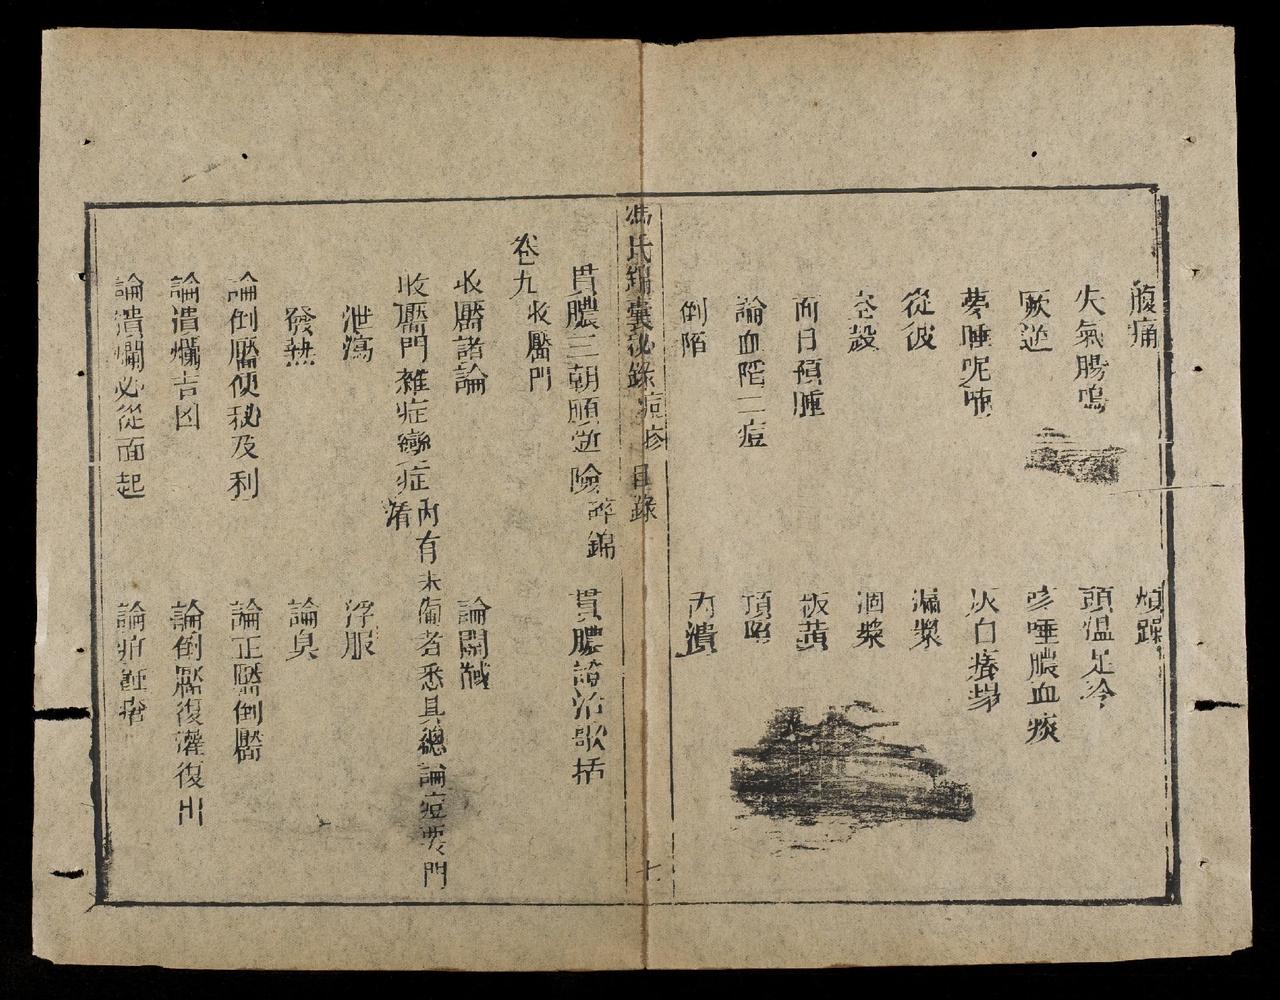 腹痛
煩躁
失氣腸鳴
頭溫足冷
厥逆
咳唾膿血痰
夢唾呢喃
灰白癢塌
從彼
漏漿
空殼
涸漿
面目預腫
板黃
論血陷二痘
頂陷
倒陷
內潰
馮氏錦囊秘錄 痘疹 目錄
七
貫膿三朝順逆險 碎錦
貫膿證治歌括
卷九 收靨門
收靨諸論
論開
收靨門雜症變症 內有未備者悉具總論痘要門
浮腫
泄瀉
發熱
論臭
論倒靨便秘及利
論正靨倒靨
論潰爛吉凶
論倒靨復灌復出
論潰爛必從面起